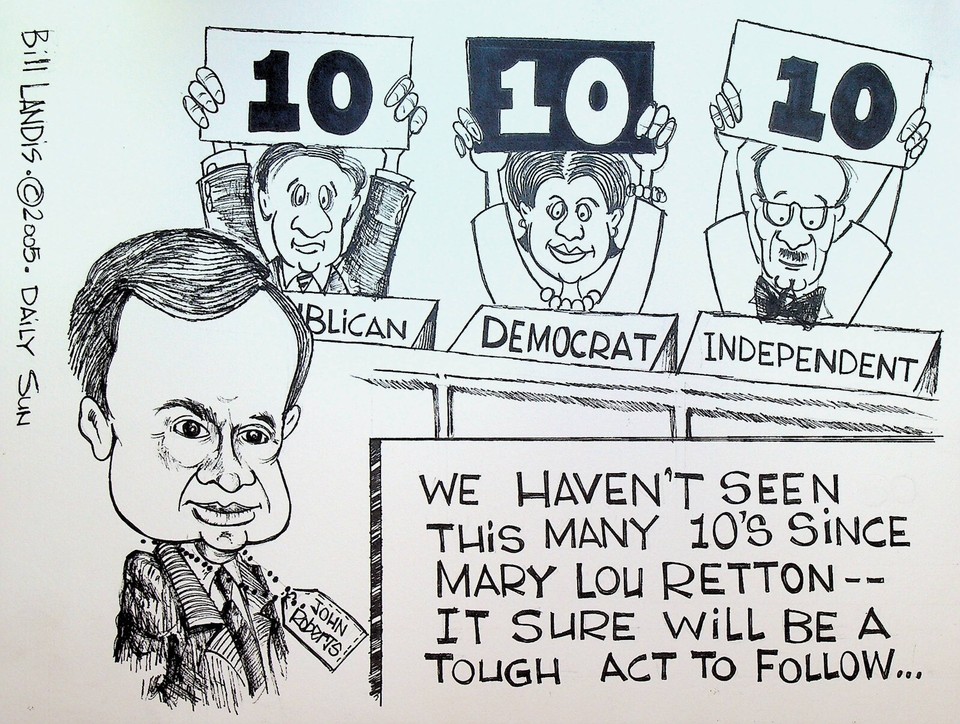 Bill LANDIS. ©2005. DAILY SUN
10
10
10
BLICAN
DEMOCRAT
INDEPENDENT
JOHN
ROBERTS
WE HAVEN'T SEEN
THIS MANY 10'S SINCE
MARY LOU RETTON--
IT SURE WILL BE A
TOUGH ACT TO FOLLOW...